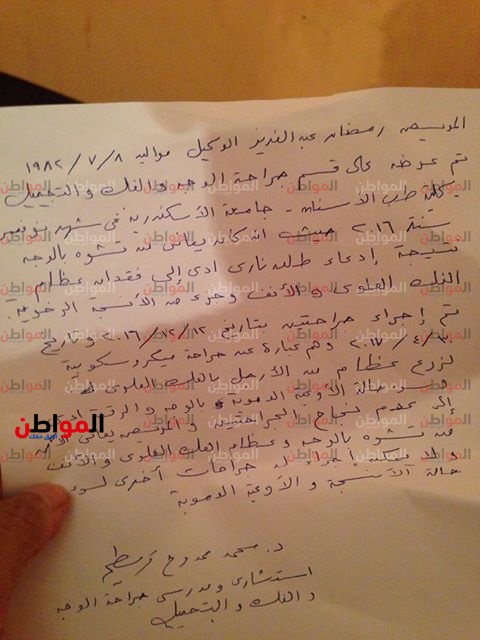 المريض رمضان عبد العزيز الوكيل مواليد ١٩٨٢/٧/٨
تم عرضه على قسم جراحة الوجه والفك والتجميل
بكلية طب الأسنان - جامعة الأسكندرية فى شهر نوفمبر
سنة ٢٠١٦ حيث انه كان يعانى من تشوه بالوجه
نتيجة إدعاء طلق نارى ادى إلى فقدان عظام
الفك العلوى و الأنف وجزء من الأنسجة الرخوة
تم إجراء جراحتين بتاريخ ٢٠١٦/١٢/١٢ و بتاريخ
٢٠١٧/٤/ وهم عبارة عن جراحة ميكروسكوبية
لزرع عظام من الأرجل بالفك العلوى
حالة الأوعية الدموية بالوجه و الرقبة ادى
إلى عدم نجاح الجراحتين و المريض يعانى الآن
من تشوه بالوجه و عظام الفك العلوى والأنف
ولا يمكن إجراء له جراحات أخرى لسوء
حالة الأنسجة و الأوعية الدموية
د. محمد ممدوح
استشارى و مدرس جراحة الوجه
و الفك و التجميل
المواطن